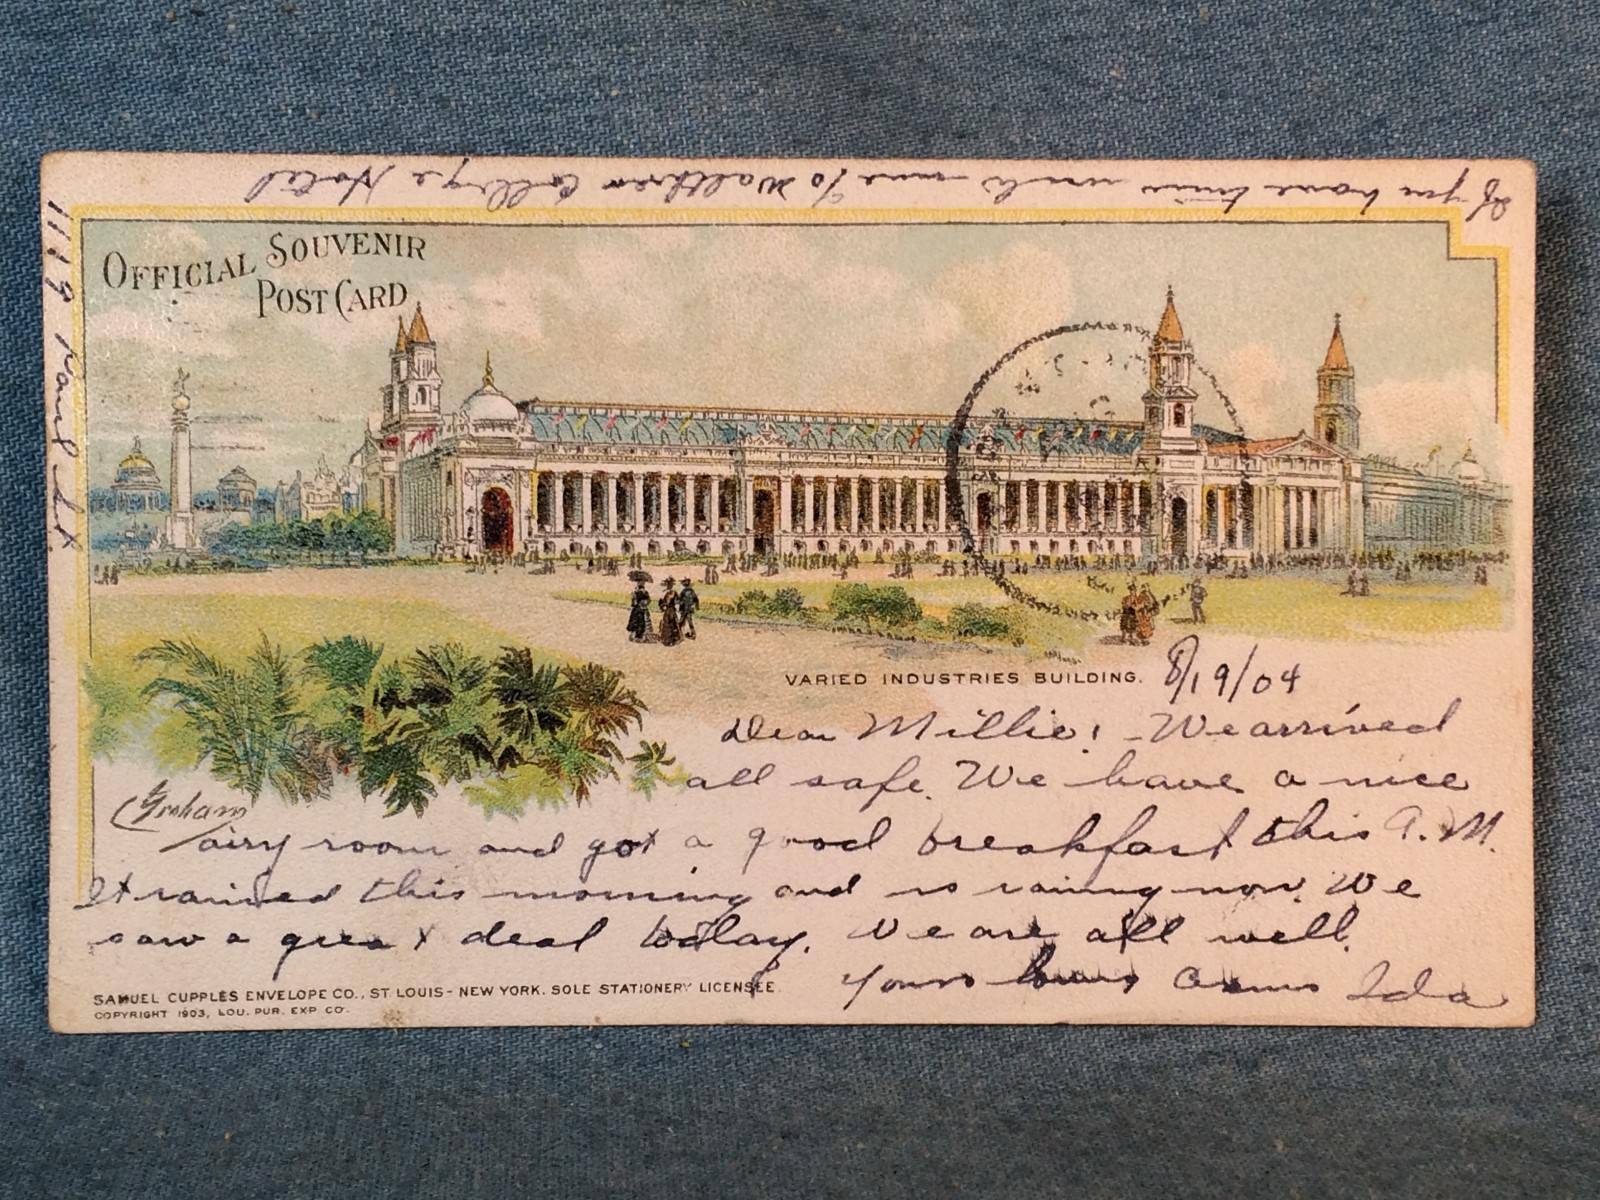 If you have time write me % Walther College Hotel
1119 Paul St.
OFFICIAL SOUVENIR
POST CARD
VARIED INDUSTRIES BUILDING. 8/19/04
Dear Millie! - We arrived
all safe. We have a nice
Graham
airy room and got a good breakfast this A.M.
It rained this morning and is raining now. We
saw a great deal today. We are all well.
Yours Ida
SAMUEL CUPPLES ENVELOPE CO., ST. LOUIS - NEW YORK. SOLE STATIONERY LICENSEE.
COPYRIGHT 1903, LOU. PUR. EXP. CO.